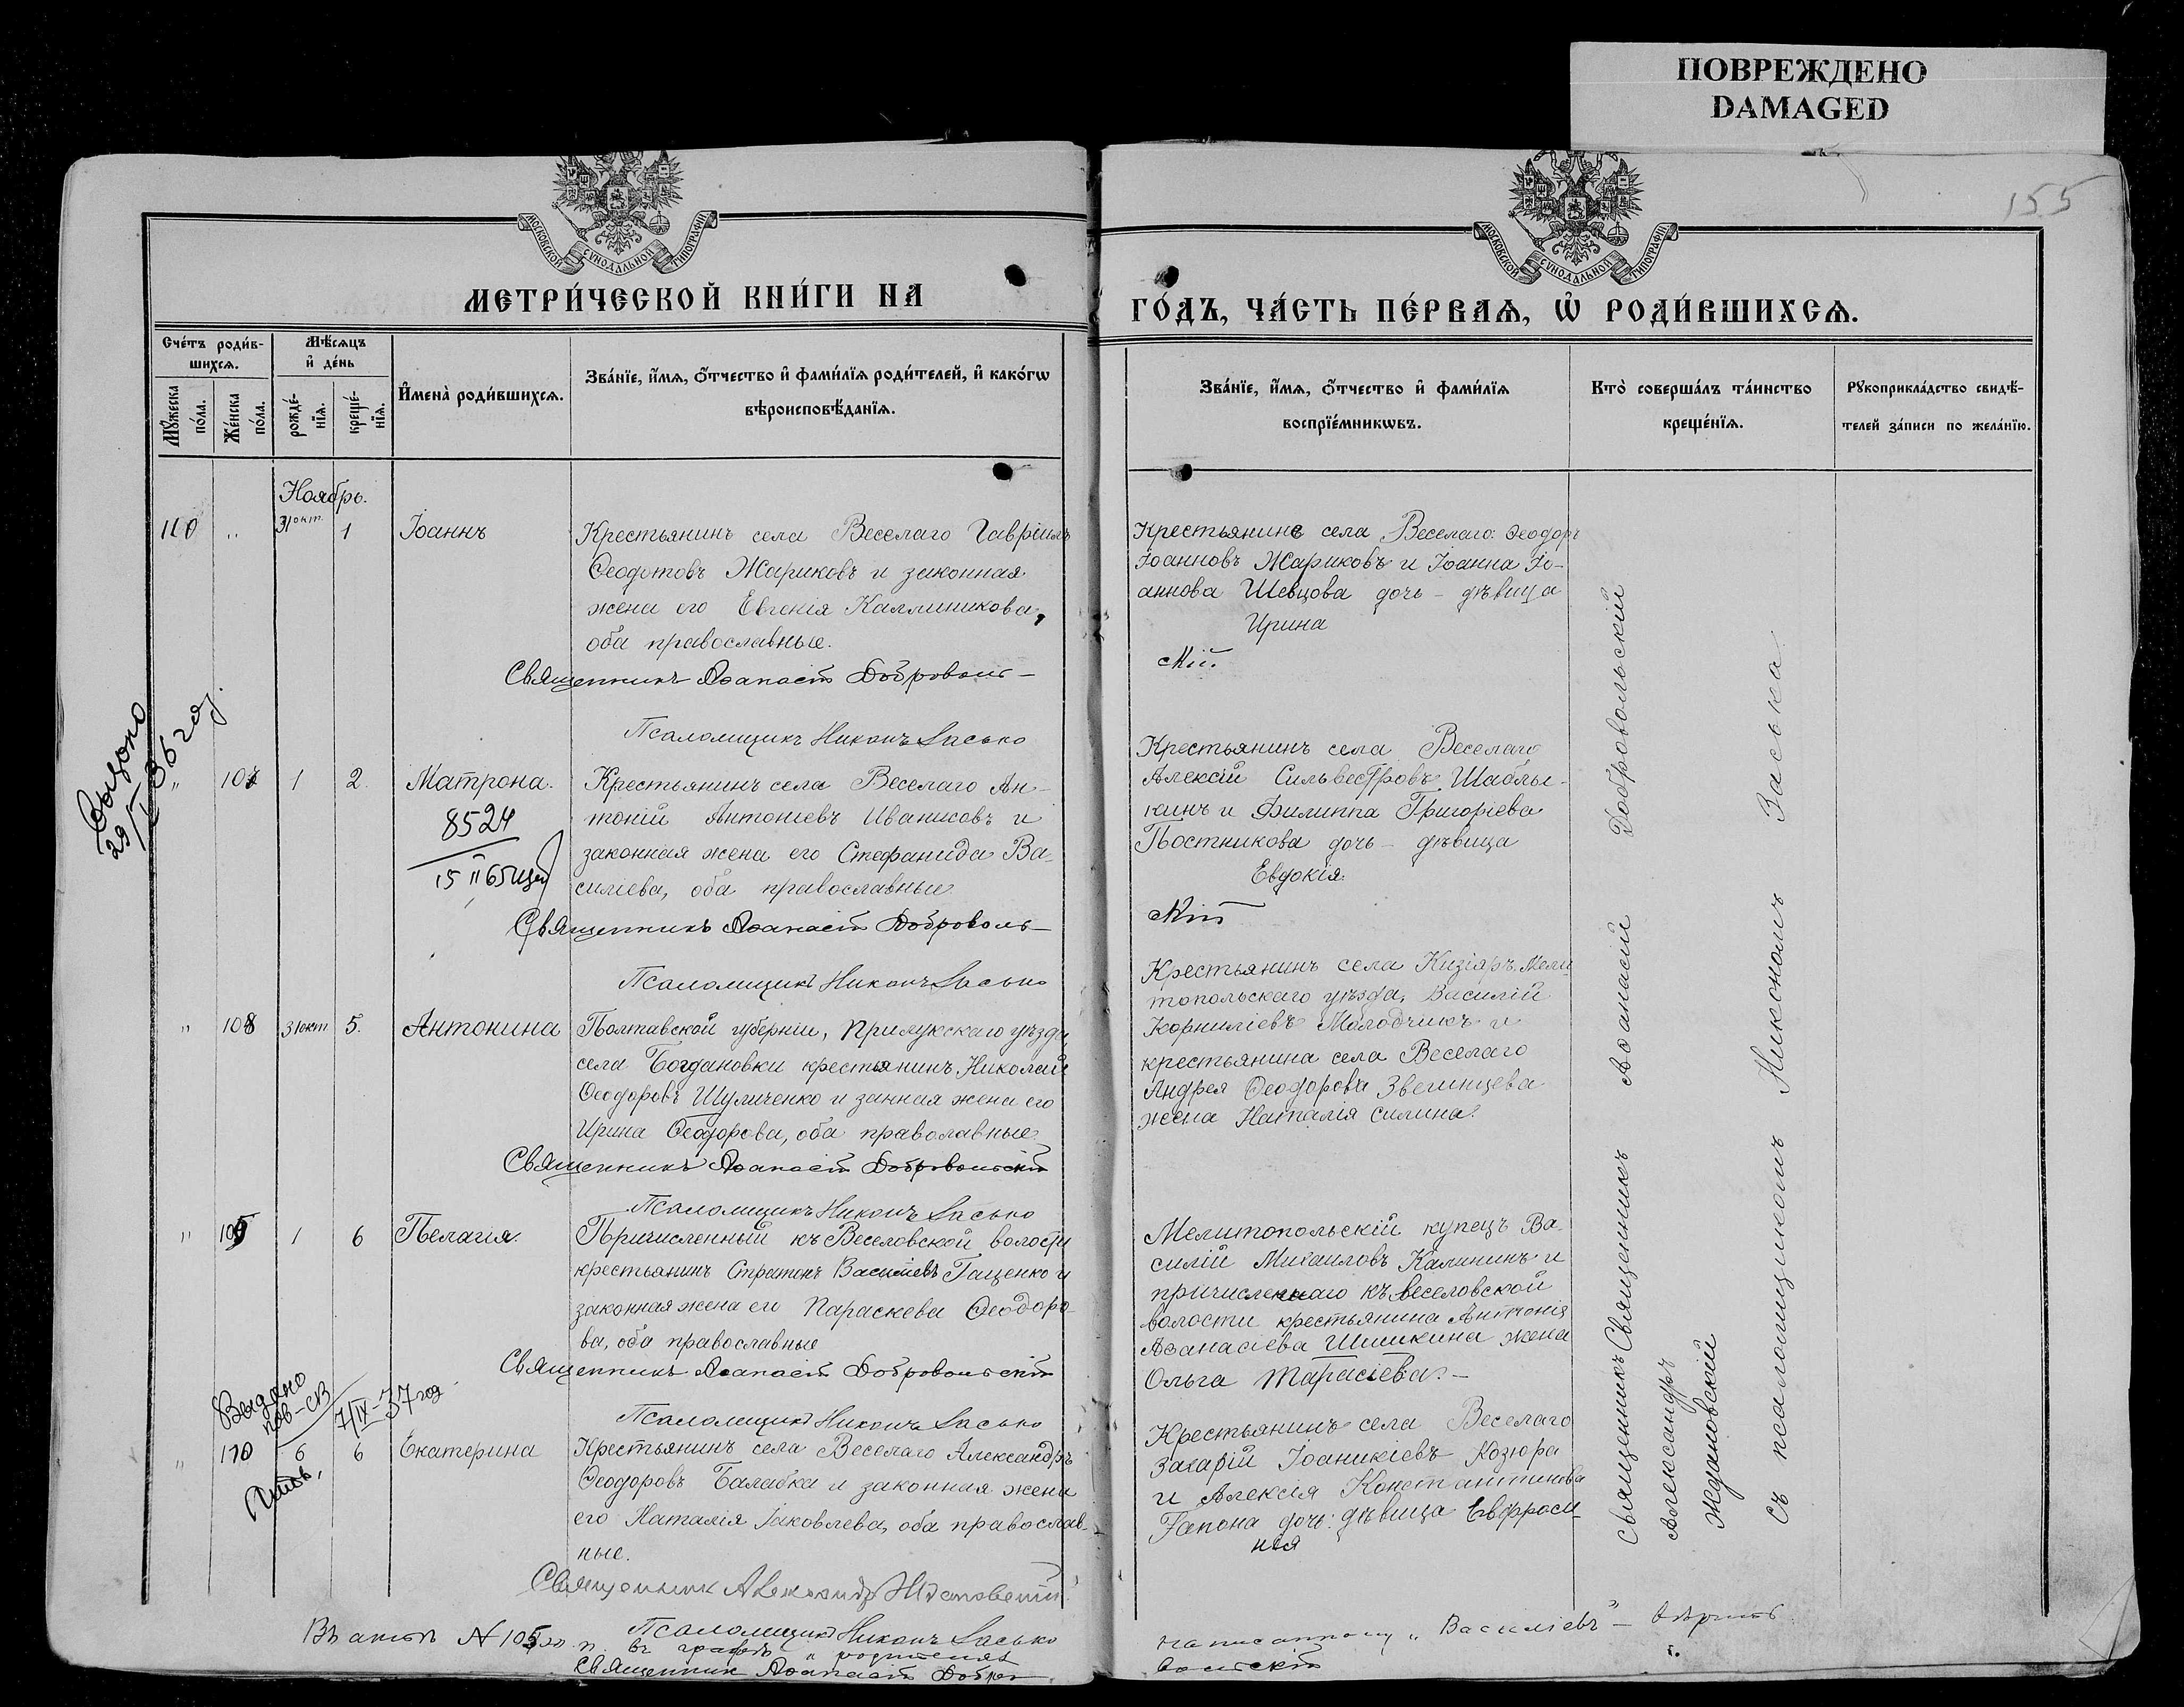 ПОВРЕЖДЕНО
DAMAGED
155
МОСКОВСКОЙ СѴНОДАЛЬНОЙ ТИПОГРАФІИ
МОСКОВСКОЙ СѴНОДАЛЬНОЙ ТИПОГРАФІИ
МЕТРИ́ЧЕСКОЙ КНИ́ГИ НА
ГО́ДЪ, ЧА́СТЬ ПЕ́РВАѦ, Ѡ҆ РОДИ́ВШИХСѦ.
Сче́тъ роди́в-
шихсѧ.
Мꙋ́жеска
по́ла.
Же́нска
по́ла.
Мѣ́сѧцъ
и҆ де́нь
рожде́-
нїѧ.
креще́-
нїѧ.
И҆мена̀ роди́вшихсѧ.
Зва́нїе, и҆́мѧ, ѻ҆́тчество и҆ фами́лїѧ роди́телей, и҆ како́гѡ
вѣроисповѣ́данїѧ.
Зва́нїе, и҆́мѧ, ѻ҆́тчество и҆ фами́лїѧ
воспрїе́мникѡвъ.
Кто̀ соверша́лъ та́инство
креще́нїѧ.
Рꙋкоприкла́дство свидѣ́-
телей за́писи по жела́нїю.
Ноябрь.
110 " 31 окт. 1 Іоаннъ
Крестьянинъ села Веселаго Гавріилъ
Ѳеодотовъ Жариковъ и законная
жена его Евгенія Каллиникова,
оба православные.
Священникъ Аѳанасій Доброволь-
Псаломщикъ Никонъ Засько
Крестьянинъ села Веселаго Ѳеодоръ
Іоанновъ Жариковъ и Іоанна Іо-
аннова Шевцова дочь - дѣвица
Ирина
скій.
Выдано
29/I 36 год.
" 107 1 2 Матрона.
8524
15 II 65
Крестьянинъ села Веселаго Ан-
тоній Антоніевъ Иванисовъ и
законная жена его Стефанида Ва-
силіева, оба православные
Священникъ Аѳанасій Доброволь-
Псаломщикъ Никонъ Засько
Крестьянинъ села Веселаго
Алексій Сильвестровъ Шаблы-
кинъ и Филиппа Григоріева
Постникова дочь - дѣвица
Евдокія.
скій
" 108 31 окт 5. Антонина
Полтавской губерніи, Прилукскаго уѣзда,
села Богдановки крестьянинъ Николай
Ѳеодоровъ Шуличенко и занная жена его
Ирина Ѳеодорова, оба праволавные
Священникъ Аѳанасій Добровольскій
Псаломщикъ Никонъ Засько
Крестьянинъ села Кизіяръ, Мели-
топольскаго уѣзда, Василій
Корниліевъ Молодчикъ и
крестьянина села Веселаго
Андрея Ѳеодорова Звегинцева
жена Наталія Силина.
" 109 1 6 Пелагія.
Причисленный къ Веселовской волости
крестьянинъ Стратонъ Василіевъ Гащенко и
законная жена его Параскева Ѳеодоро-
ва, оба православные
Священникъ Аѳанасій Добровольскій
Псаломщикъ Никонъ Засько
Мелитопольскій купецъ Ва-
силій Михаиловъ Калининъ и
причисленнаго къ Веселовской
волости крестьянина Антонія
Аѳанасіева Шишкина жена
Ольга Тарасіева.-
Выдано
пов-св
7/IX-37 год
" 110 6 6 Екатерина
Крестьянинъ села Веселаго Александръ
Ѳеодоровъ Балабка и законная жена
его Наталія Іаковлева, оба православ-
ные.
Священникъ Александръ Ждановскій
Псаломщикъ Никонъ Засько
Крестьянинъ села Веселаго
Захарій Іоаникіевъ Козюра
и Алексія Константинова
Гапона дочь: дѣвица Евфроси-
нія
Священникъ Священникъ Аѳанасій Добровольскій
Александръ
Ждановскій
Съ псаломщикомъ Никономъ Заська
Въ актѣ № 109 въ графѣ "родителяхъ
написанному "Василіевъ" - вѣрить
Священникъ Аѳанасій Добро-
вольскій